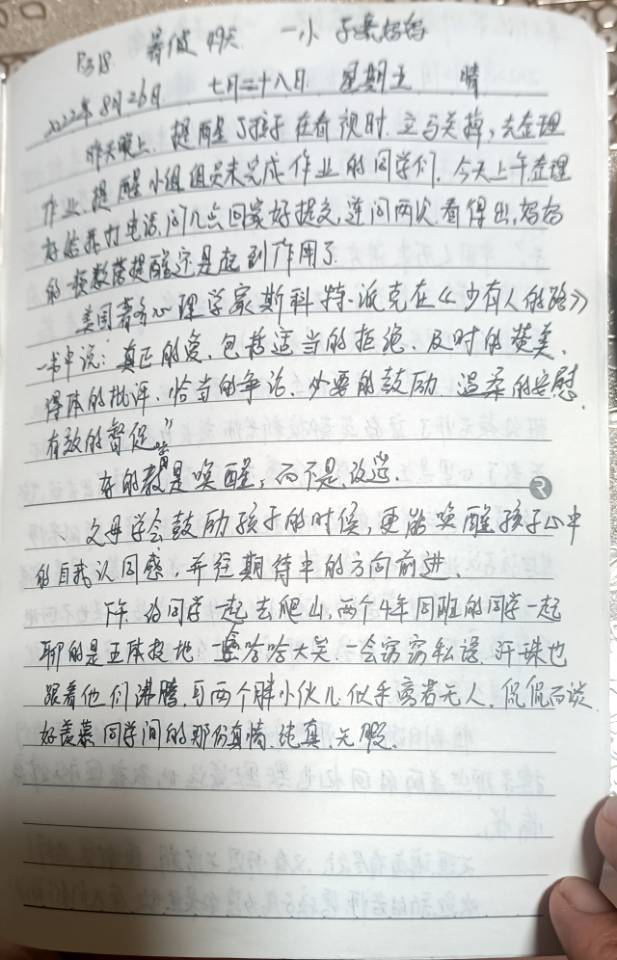 暑假49天 一小
2022年8月26日 七月二十八日 星期五 晴
昨天晚上,提醒了孩子在看视时,立马关掉,去整理
作业.提醒小组组员未完成作业的同学们.今天上午整理
好给我打电话,问几点回家好提交,连问两次.看得出,妈妈
的一模数落提醒还是起到作用了.
美国著名心理学家斯科特·派克在《少有人的路》
一书中说:真正的爱,包括适当的拒绝、及时的赞美、
得体的批评、恰当的争论、必要的鼓励、温柔的安慰、
有效的督促."
有的教是唤醒,而不是改造.
父母学会鼓励孩子的时候,更能唤醒孩子心中
的自我认同感,并往期待中的方向前进.
下午.约同学一起去爬山,两个4年同班的同学一起
聊的是五体投地.一会哈哈大笑.一会窃窃私语.汗珠也
跟着他们沸腾,与两个胖小伙儿似乎旁若无人,侃侃而谈.
好羡慕同学间的那份真情,纯真,无暇.
2